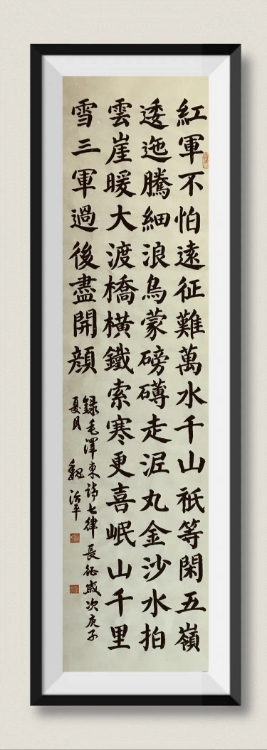 紅軍不怕遠征難萬水千山祇等閑五嶺
逶迤騰細浪烏蒙磅礴走泥丸金沙水拍
雲崖暖大渡橋橫鐵索寒更喜岷山千里
雪三軍過後盡開顔
録毛澤東詩七律長征歲次庚子
夏月